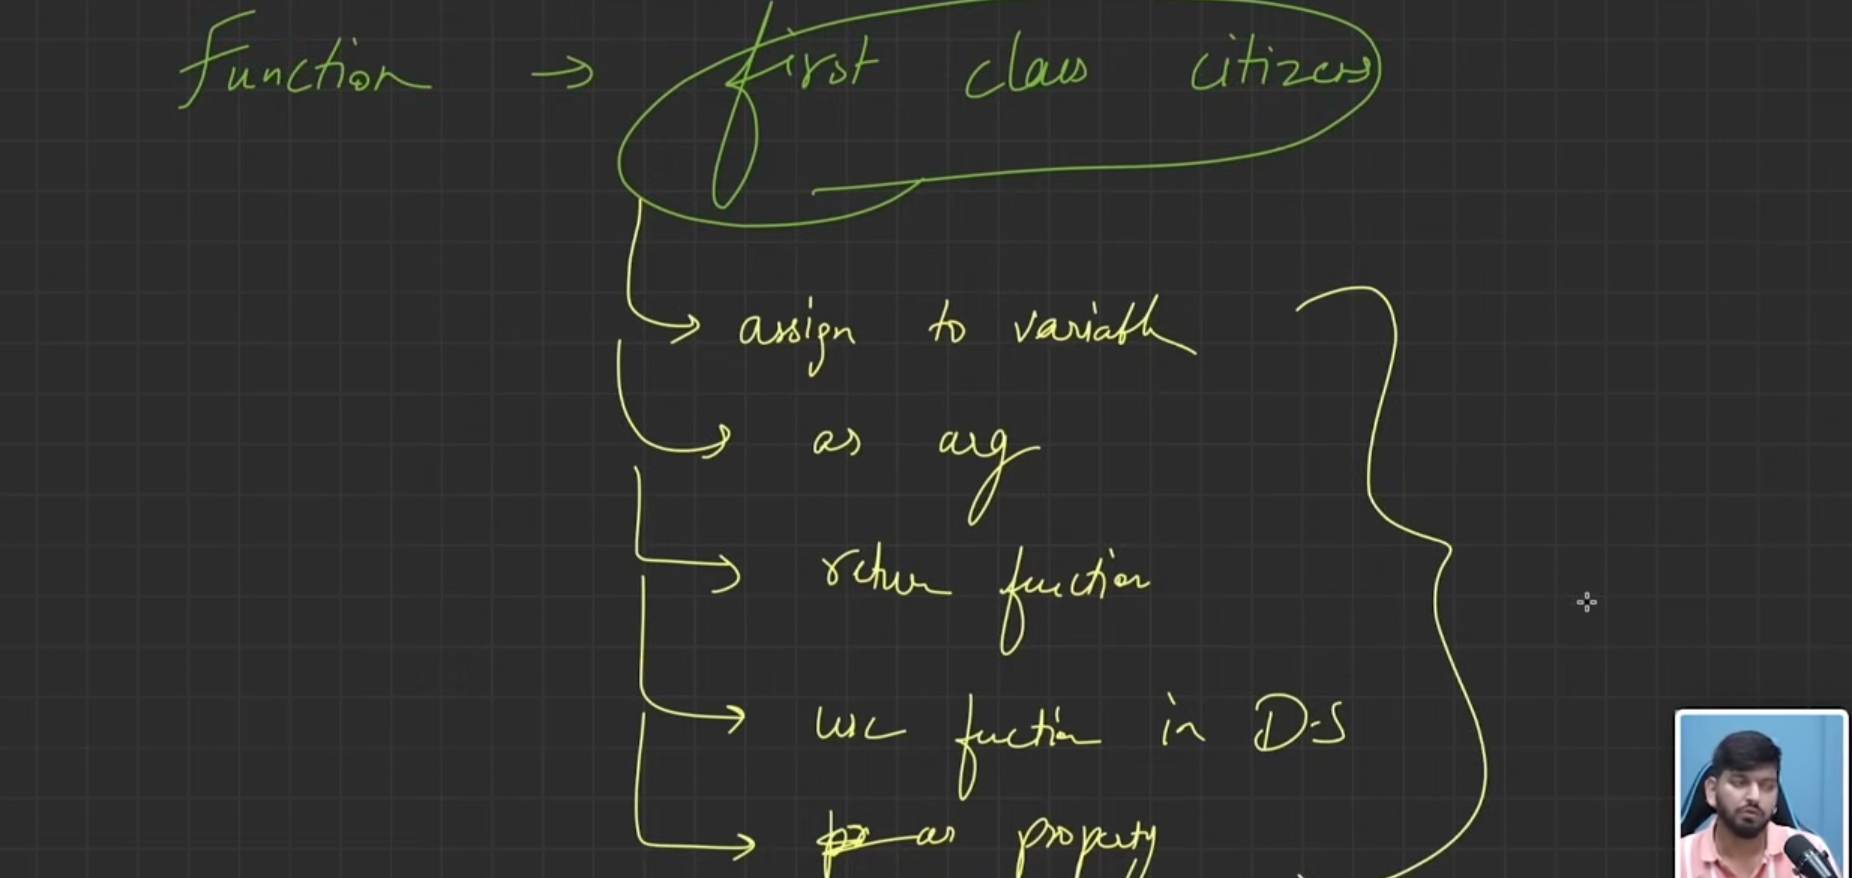 Function → first class citizens
→ assign to variable
→ as arg
→ return function
→ use fuction in D-S
→ as property